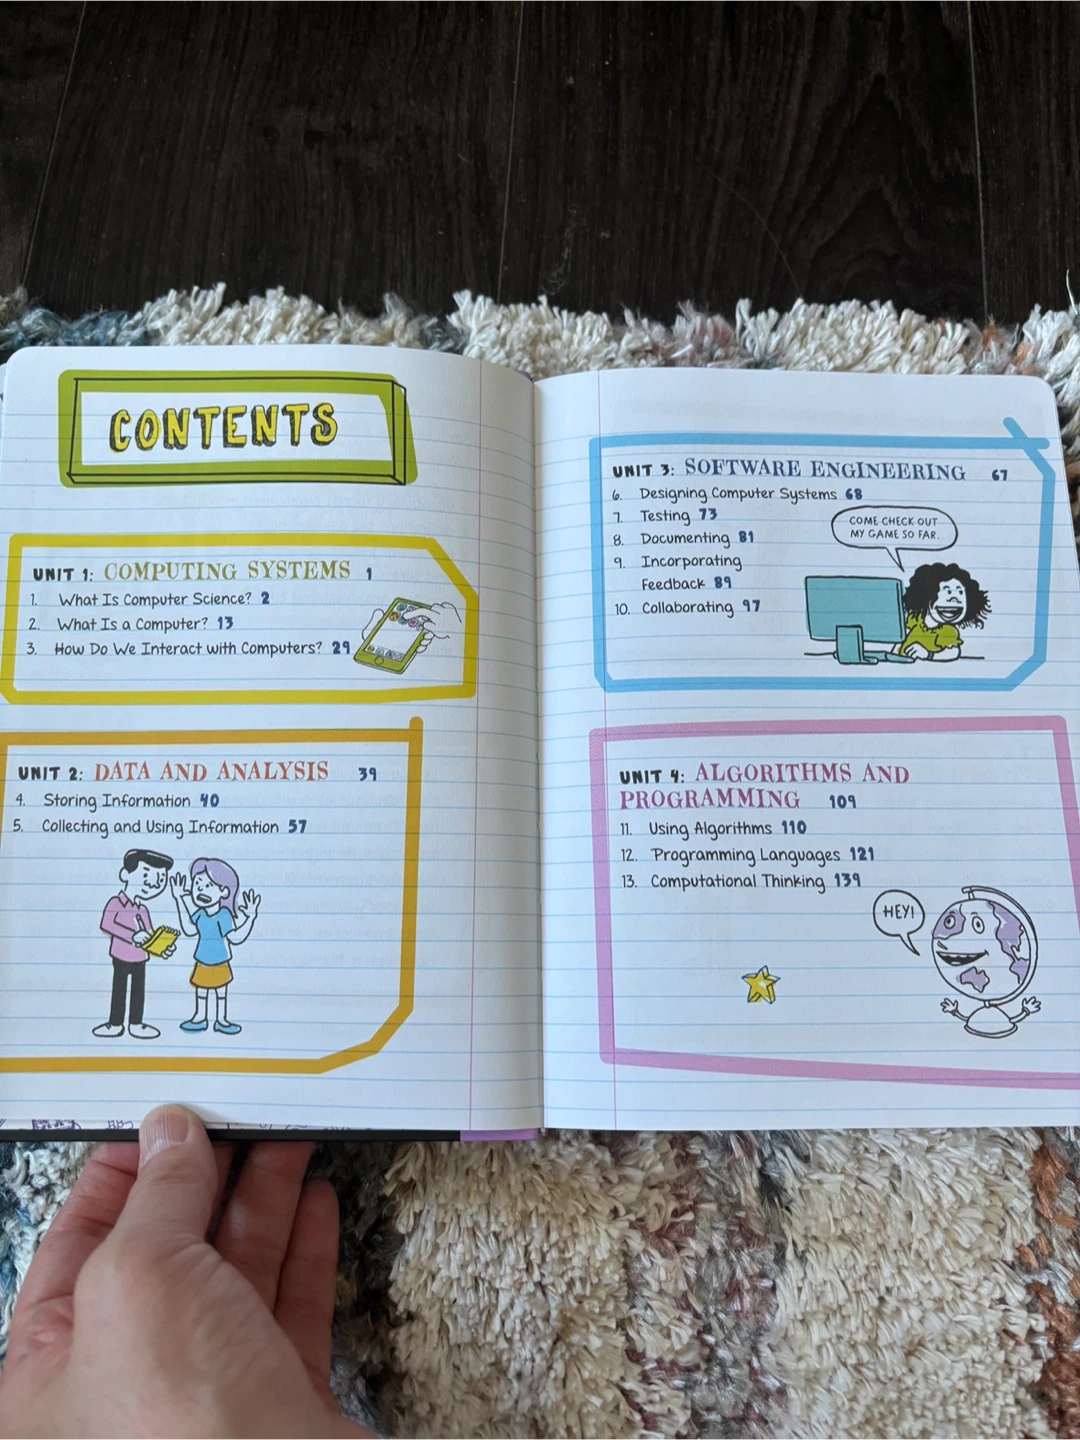 CONTENTS
UNIT 1: COMPUTING SYSTEMS 1
1. What Is Computer Science? 2
2. What Is a Computer? 13
3. How Do We Interact with Computers? 29
UNIT 2: DATA AND ANALYSIS 39
4. Storing Information 40
5. Collecting and Using Information 57
UNIT 3: SOFTWARE ENGINEERING 67
6. Designing Computer Systems 68
7. Testing 73
8. Documenting 81
9. Incorporating
Feedback 89
10. Collaborating 97
COME CHECK OUT
MY GAME SO FAR.
UNIT 4: ALGORITHMS AND
PROGRAMMING 109
11. Using Algorithms 110
12. Programming Languages 121
13. Computational Thinking 139
HEY!